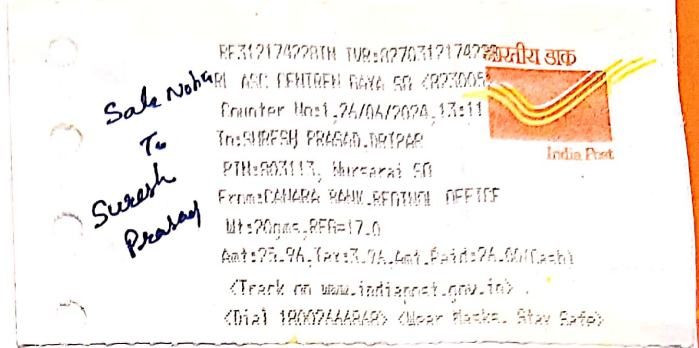 Sale Notice
To
Suresh
Prasad
भारतीय डाक
India Post
RL ASC CENTREN GAYA SO <823005>
Counter No:1,26/06/2024,13:11
To:SURESH PRASAD,DRIPAR
PIN:803113, Nursarai SO
From:CANARA BANK,REGINOL OFFICE
Wt:20gms,REG=17.0
Amt:25.96,Tax:3.96,Amt.Paid:26.00(Cash)
<Track on www.indiapost.gov.in>
<Dial 18002666868> <Wear Masks, Stay Safe>